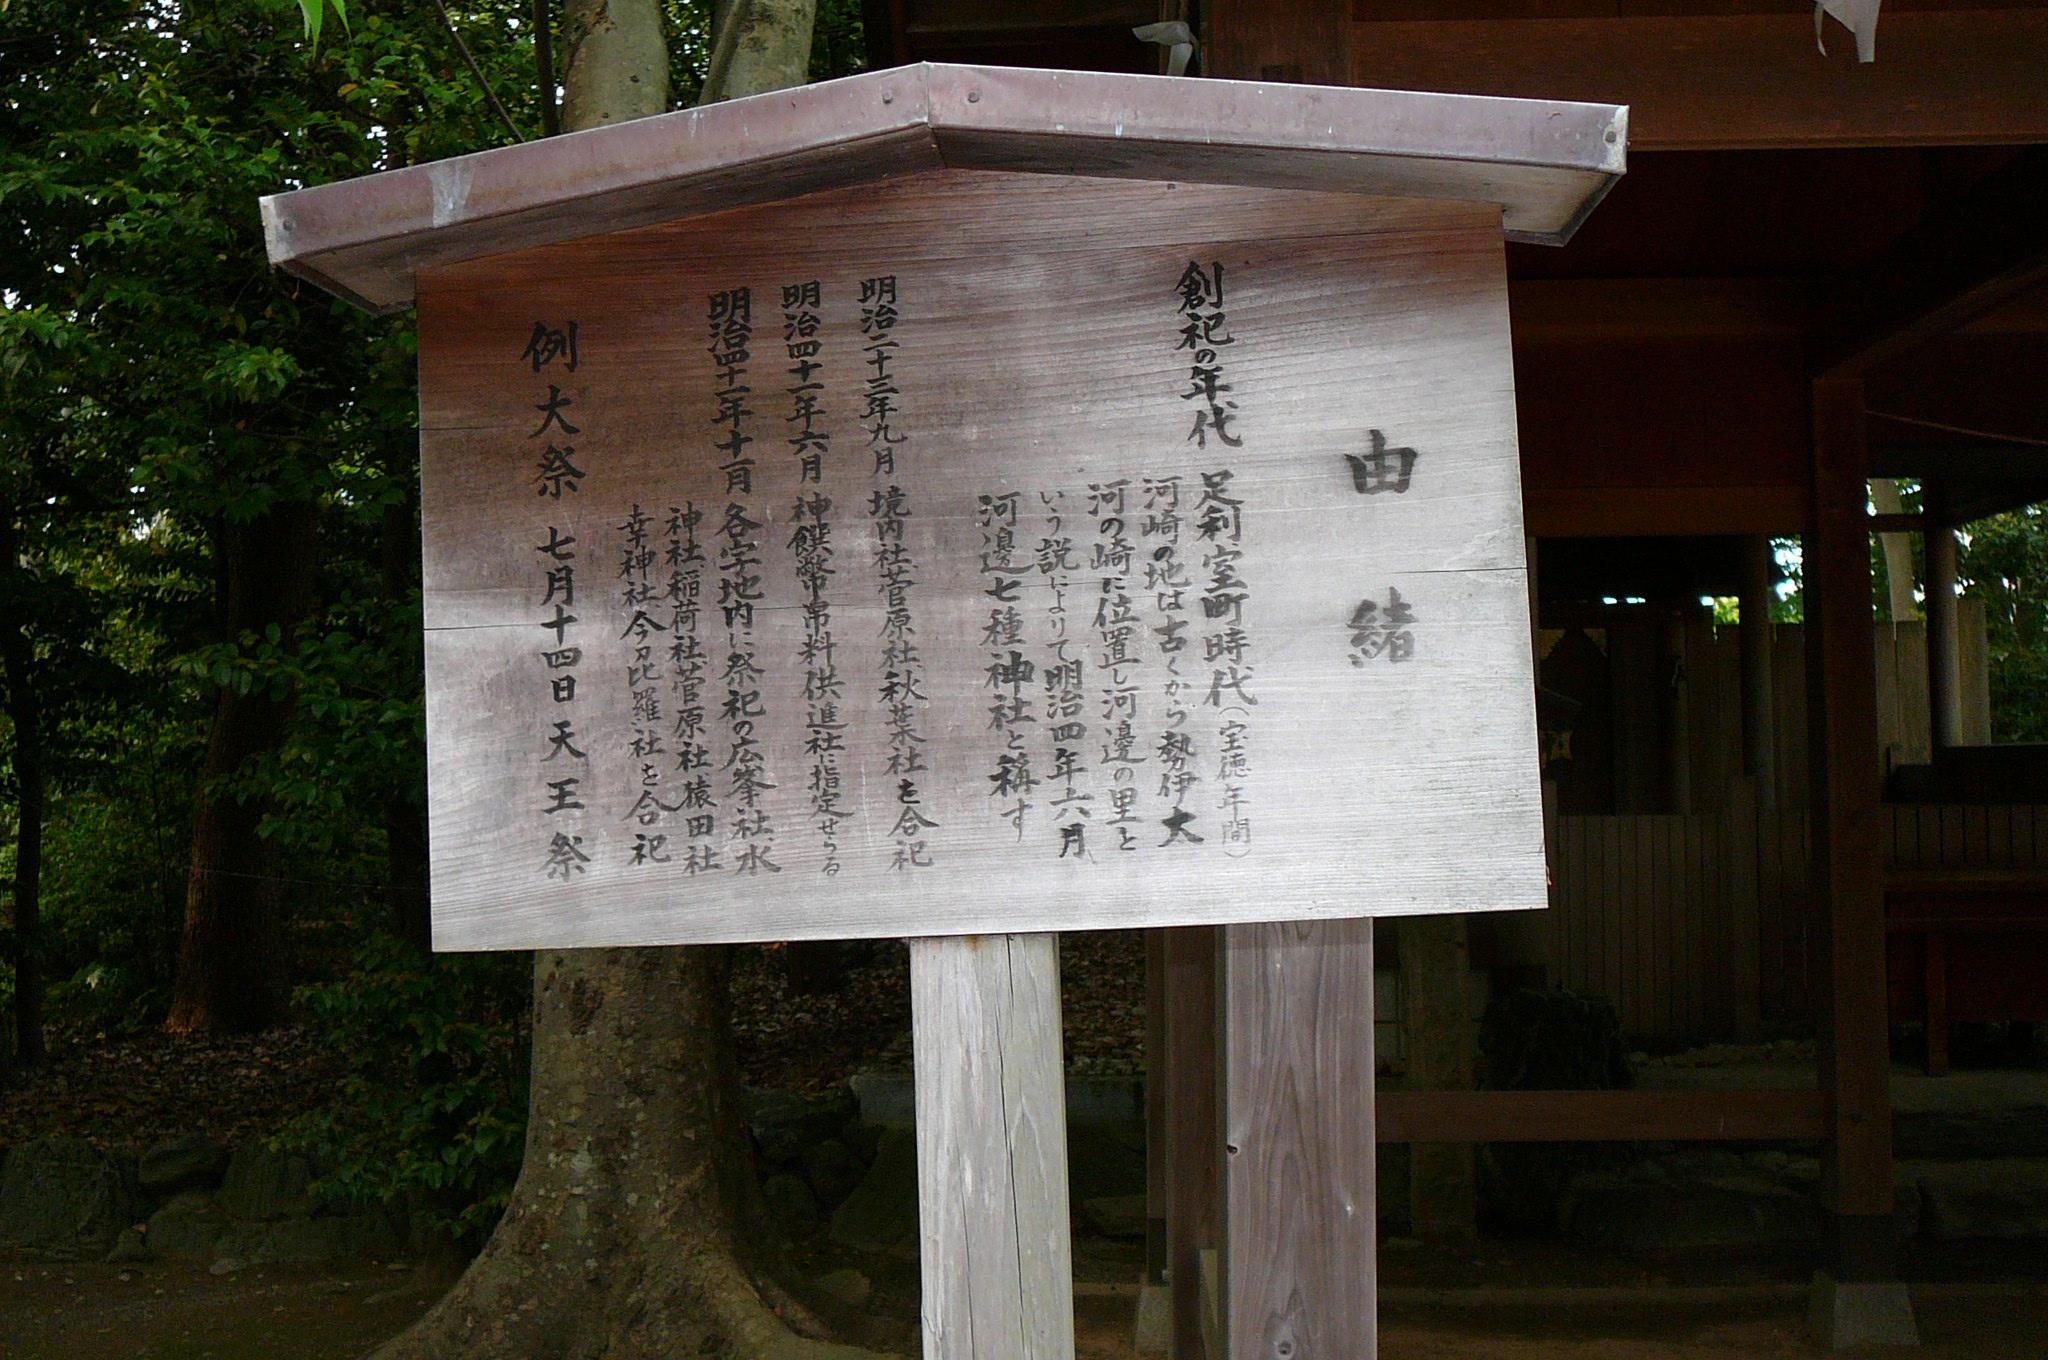 由緒
創祀の年代 足利室町時代(宝徳年間)
河崎の地は古くから勢伊大
河の崎に位置し河邊の里と
いう説によりて明治四年六月
河邊七種神社と稱す
明治二十三年九月 境内社菅原社秋葉社を合祀
明治四十一年六月 神饌幣帛料供進社に指定せらる
明治四十一年十一月 各字地内に祭祀の広峯社、水
神社、稲荷社、菅原社、猿田社
幸神社、今刀比羅社を合祀
例大祭 七月十四日 天王祭